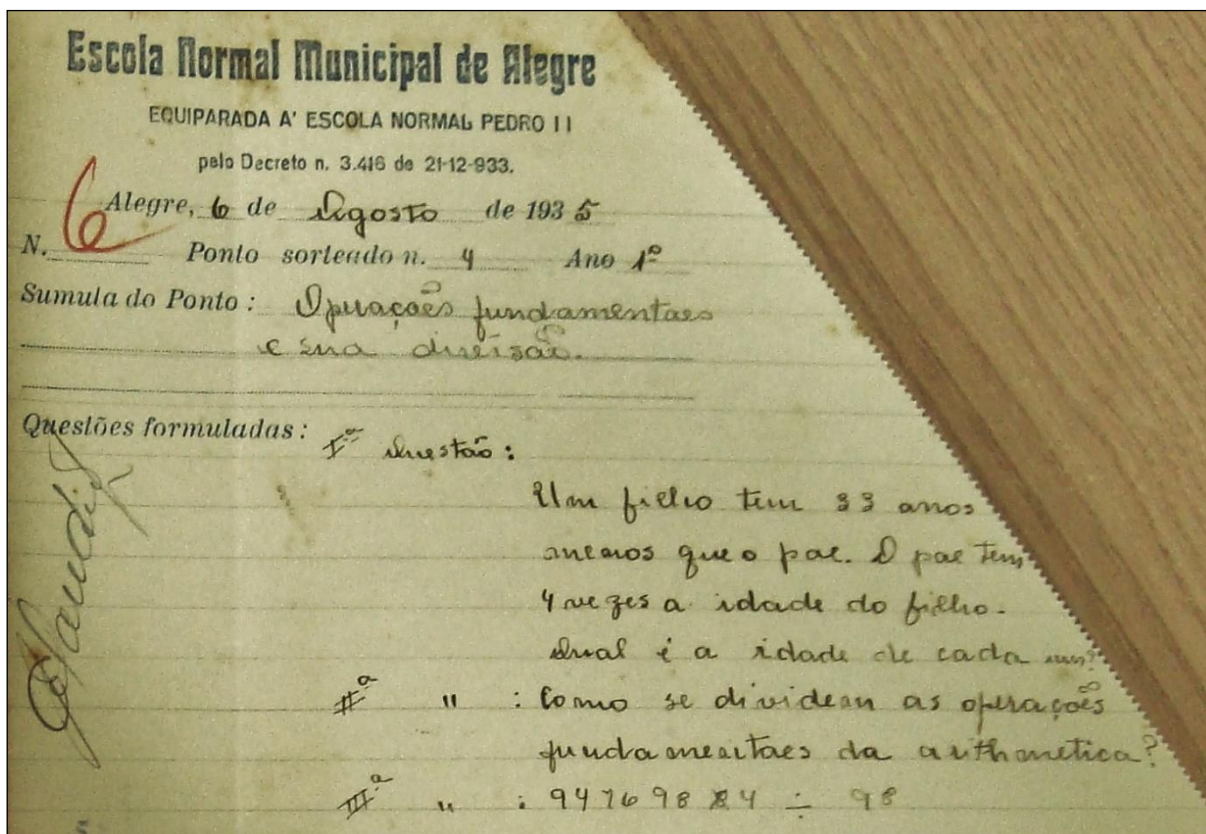 Escola Normal Municipal de Alegre
EQUIPARADA A' ESCOLA NORMAL PEDRO II
pelo Decreto n. 3.416 de 21-12-933.
Alegre, 6 de Agosto de 1935
N. 6 Ponto sorteado n. 4 Ano 1º
Sumula do Ponto: Operações fundamentaes
e sua divisão.
Questões formuladas: Iª Questão:
Um filho tem 33 anos
menos que o pae. O pae tem
4 vezes a idade do filho.
Qual é a idade de cada um?
IIª " : Como se dividem as operações
fundamentaes da arithmetica?
IIIª " : 94769884 ÷ 98